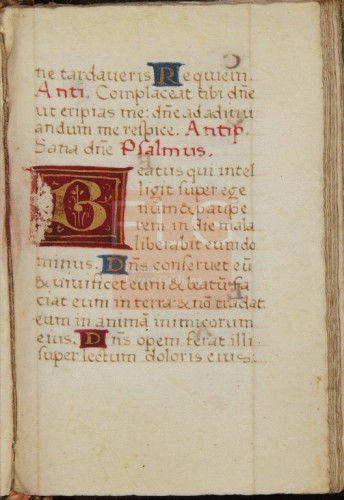 ne tardaueris Requiem.
Anti. Complaceat tibi dñe
ut eripias me: dñe ad adiuu
andum me respice. Antip.
Sana dñe Psalmus.
Beatus qui intel
ligit super ege
num & paupe
rem in die mala
liberabit eum do
minus. Dñs conseruet eũ
& uiuificet eum & beatũ fa
ciat eum in terra: & nõ tradat
eum in animã inimicorum
eius. Dñs opem ferat illi
super lectum doloris eius: